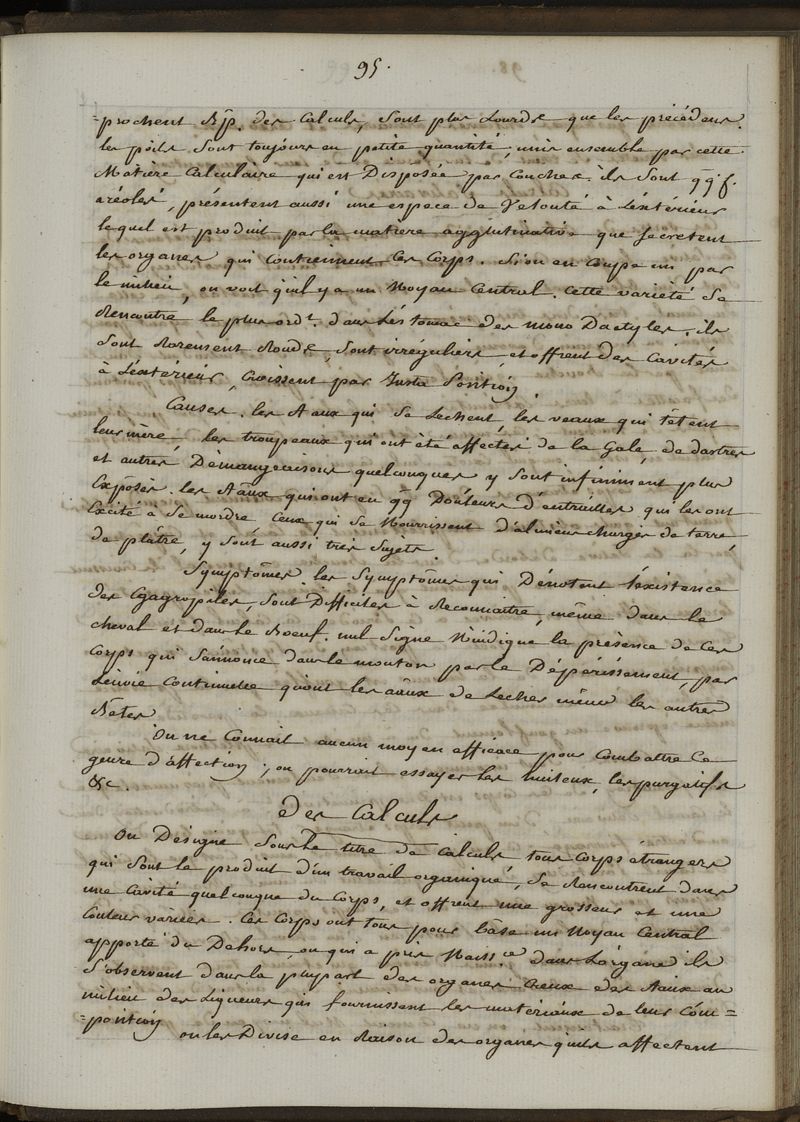 95.
=prochent Bp. des Calculs, sont plus Lourds que les précédens.
les poils sont toujours en petite quantité, unis ensemble par cette
Matière Calculaire qui est Disposée par Couches. ils sont qq.f.
aréolés, présentent aussi une espece de Velouté à L'extérieur
lequel est produit par la matiere agglutinative que secretent
les organes qui Contiennent Ces Corps. Si on en Coupe un par
le milieu, on voit qu'il y a un Noyau Central. Cette variété Se
Rencontre le plus ord.t dans L'estomac des mono Dactyles. ils
sont Rarement Ronds, sont irréguliers, et offrent des Cavités
à L'extérieur, Croissent par Juxta Position.
Causes. les Aaux qui Se Lechent, les veaux qui têtent
leur mère, les troupeaux qui ont été affectés de la Gale, de dartres
et autres Démangeaisons quelconques y sont infiniment plus
Exposés. les Aaux qui ont eu qq Douleurs d'entrailles qui les ont
Excité à Se mordre, Ceux qui Se Nourrissent d'alimens chargés de terre,
de plâtre, y sont aussi très Sujets.
Symptômes. les Symptômes qui Dénotent L'existence
des Egagropiles, sont Difficiles à Reconnaitre, même dans le
cheval et dans le Boeuf. nul Signe N'indique la présence de Ces
Corps qui S'annonce dans le mouton par le Dépérissement, par
L'envie Continuelle qu'ont les aaux de Lecher même les autres
Bêtes
On ne Connait aucun moyen efficace pour Combattre Ce
genre d'affection; on pourrait essayer les huileux, les purgatifs
&c.
Des Calculs
On Désigne Sous Le titre de Calculs tous Corps étrangers
qui Sont le produit d'un travail organique, Se Rencontrent dans
une Cavité quelconque du Corps, et offrent une grosseur et une
Couleur variées. Ces Corps ont tous pour bâse un Noyau Central
apporté du Dehors, ou qui a pris Naiss.ce dans L'organe. ils
S'observent dans la plupart des organes Creux des Aaux au
milieu des Liqueurs qui fournissent les matériaux de leur Com=
=position
on les Divise en Raison des organes qu'ils affectent